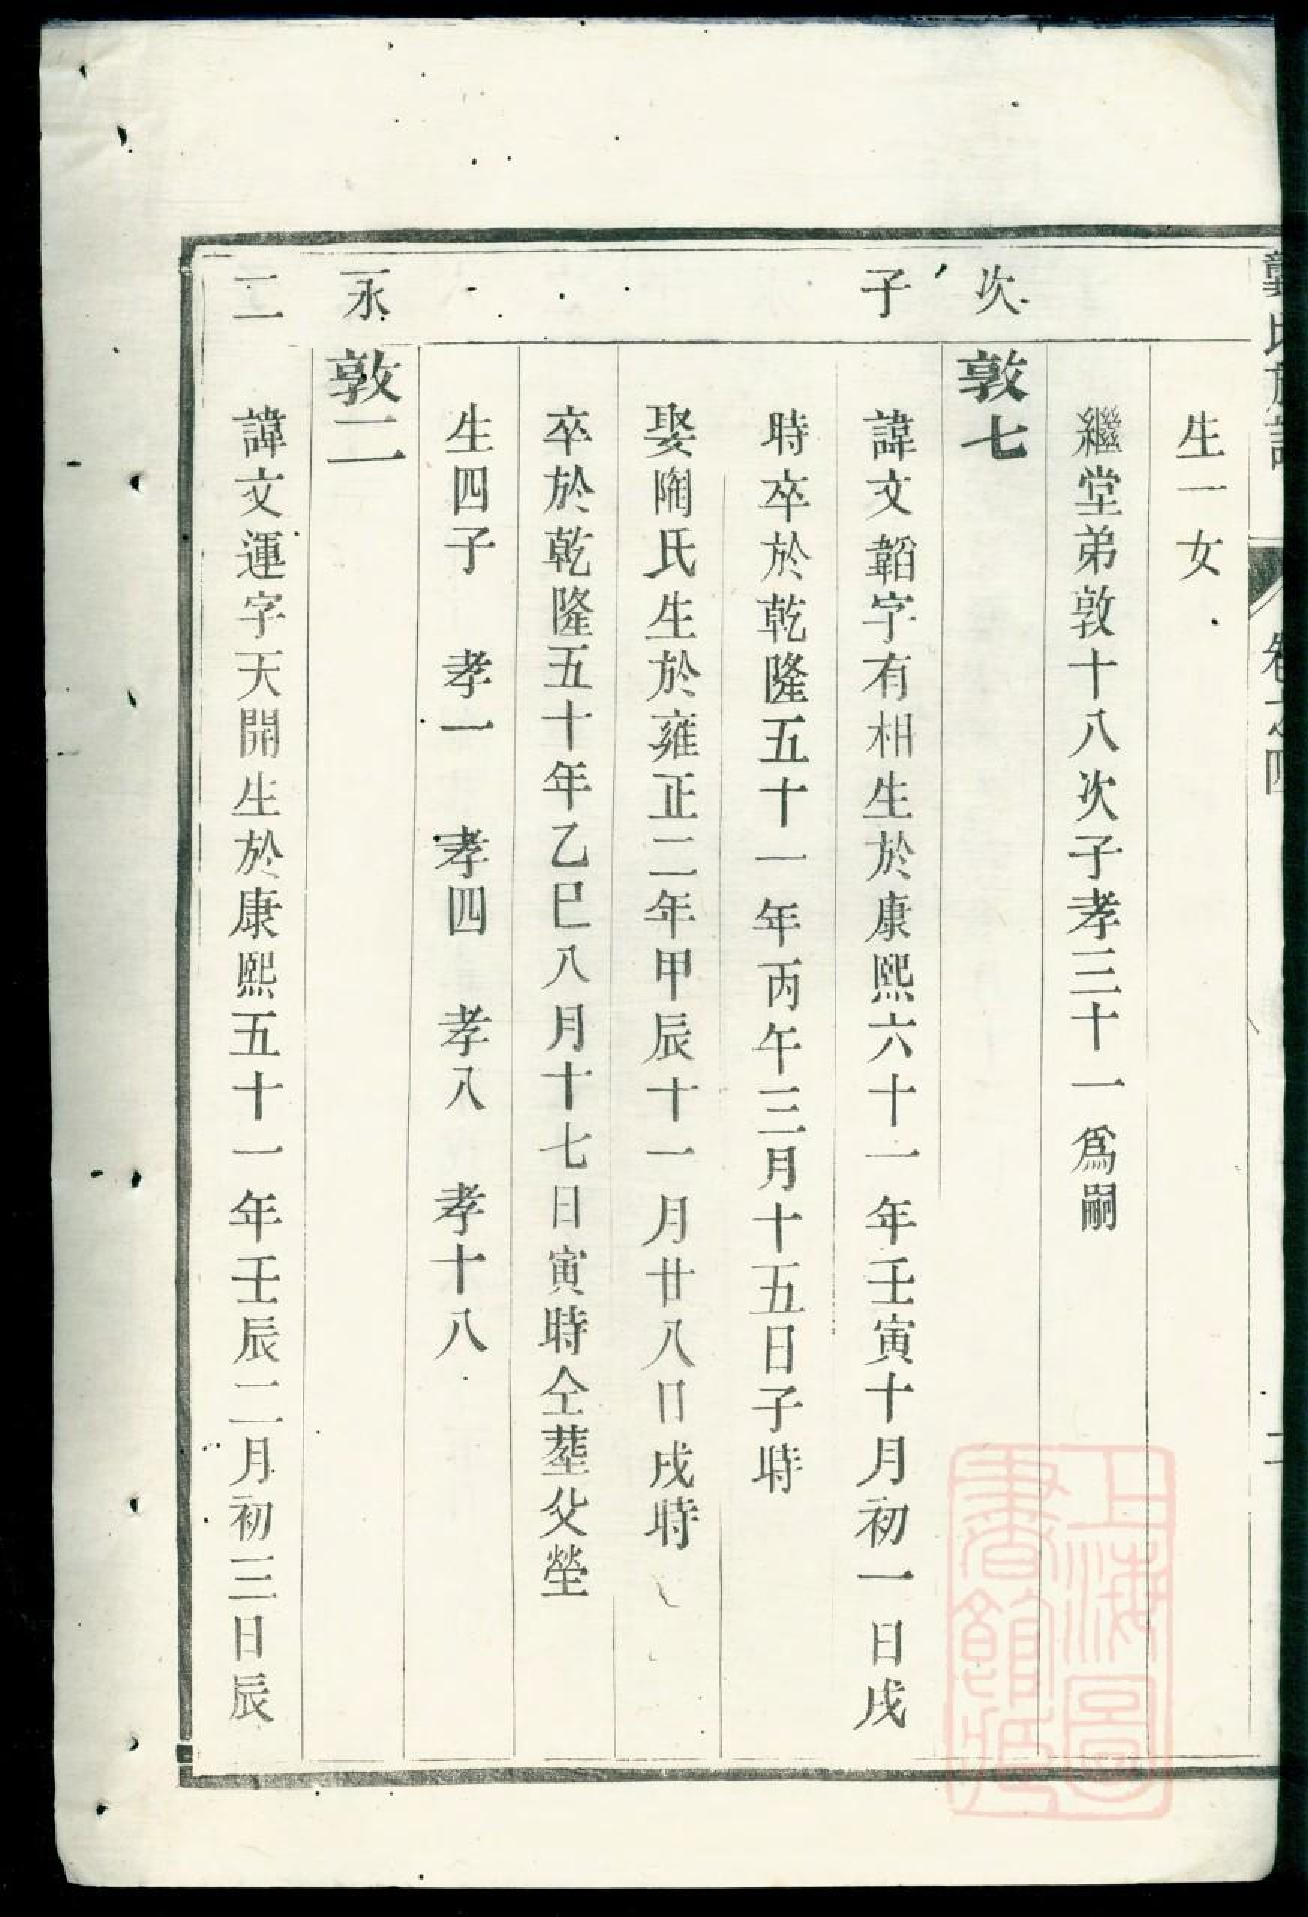 龔氏族譜 卷之四
生一女
繼堂弟敦十八次子孝三十一爲嗣
次 敦七
子 諱文韜字有相生於康熙六十一年壬寅十月初一日戌
時卒於乾隆五十一年丙午三月十五日子時
娶陶氏生於雍正二年甲辰十一月廿八日戌時
卒於乾隆五十年乙巳八月十七日寅時仝塟父塋
生四子 孝一 孝四 孝八 孝十八
永 敦二
二 諱文運字天開生於康熙五十一年壬辰二月初三日辰
上海圖
書館藏